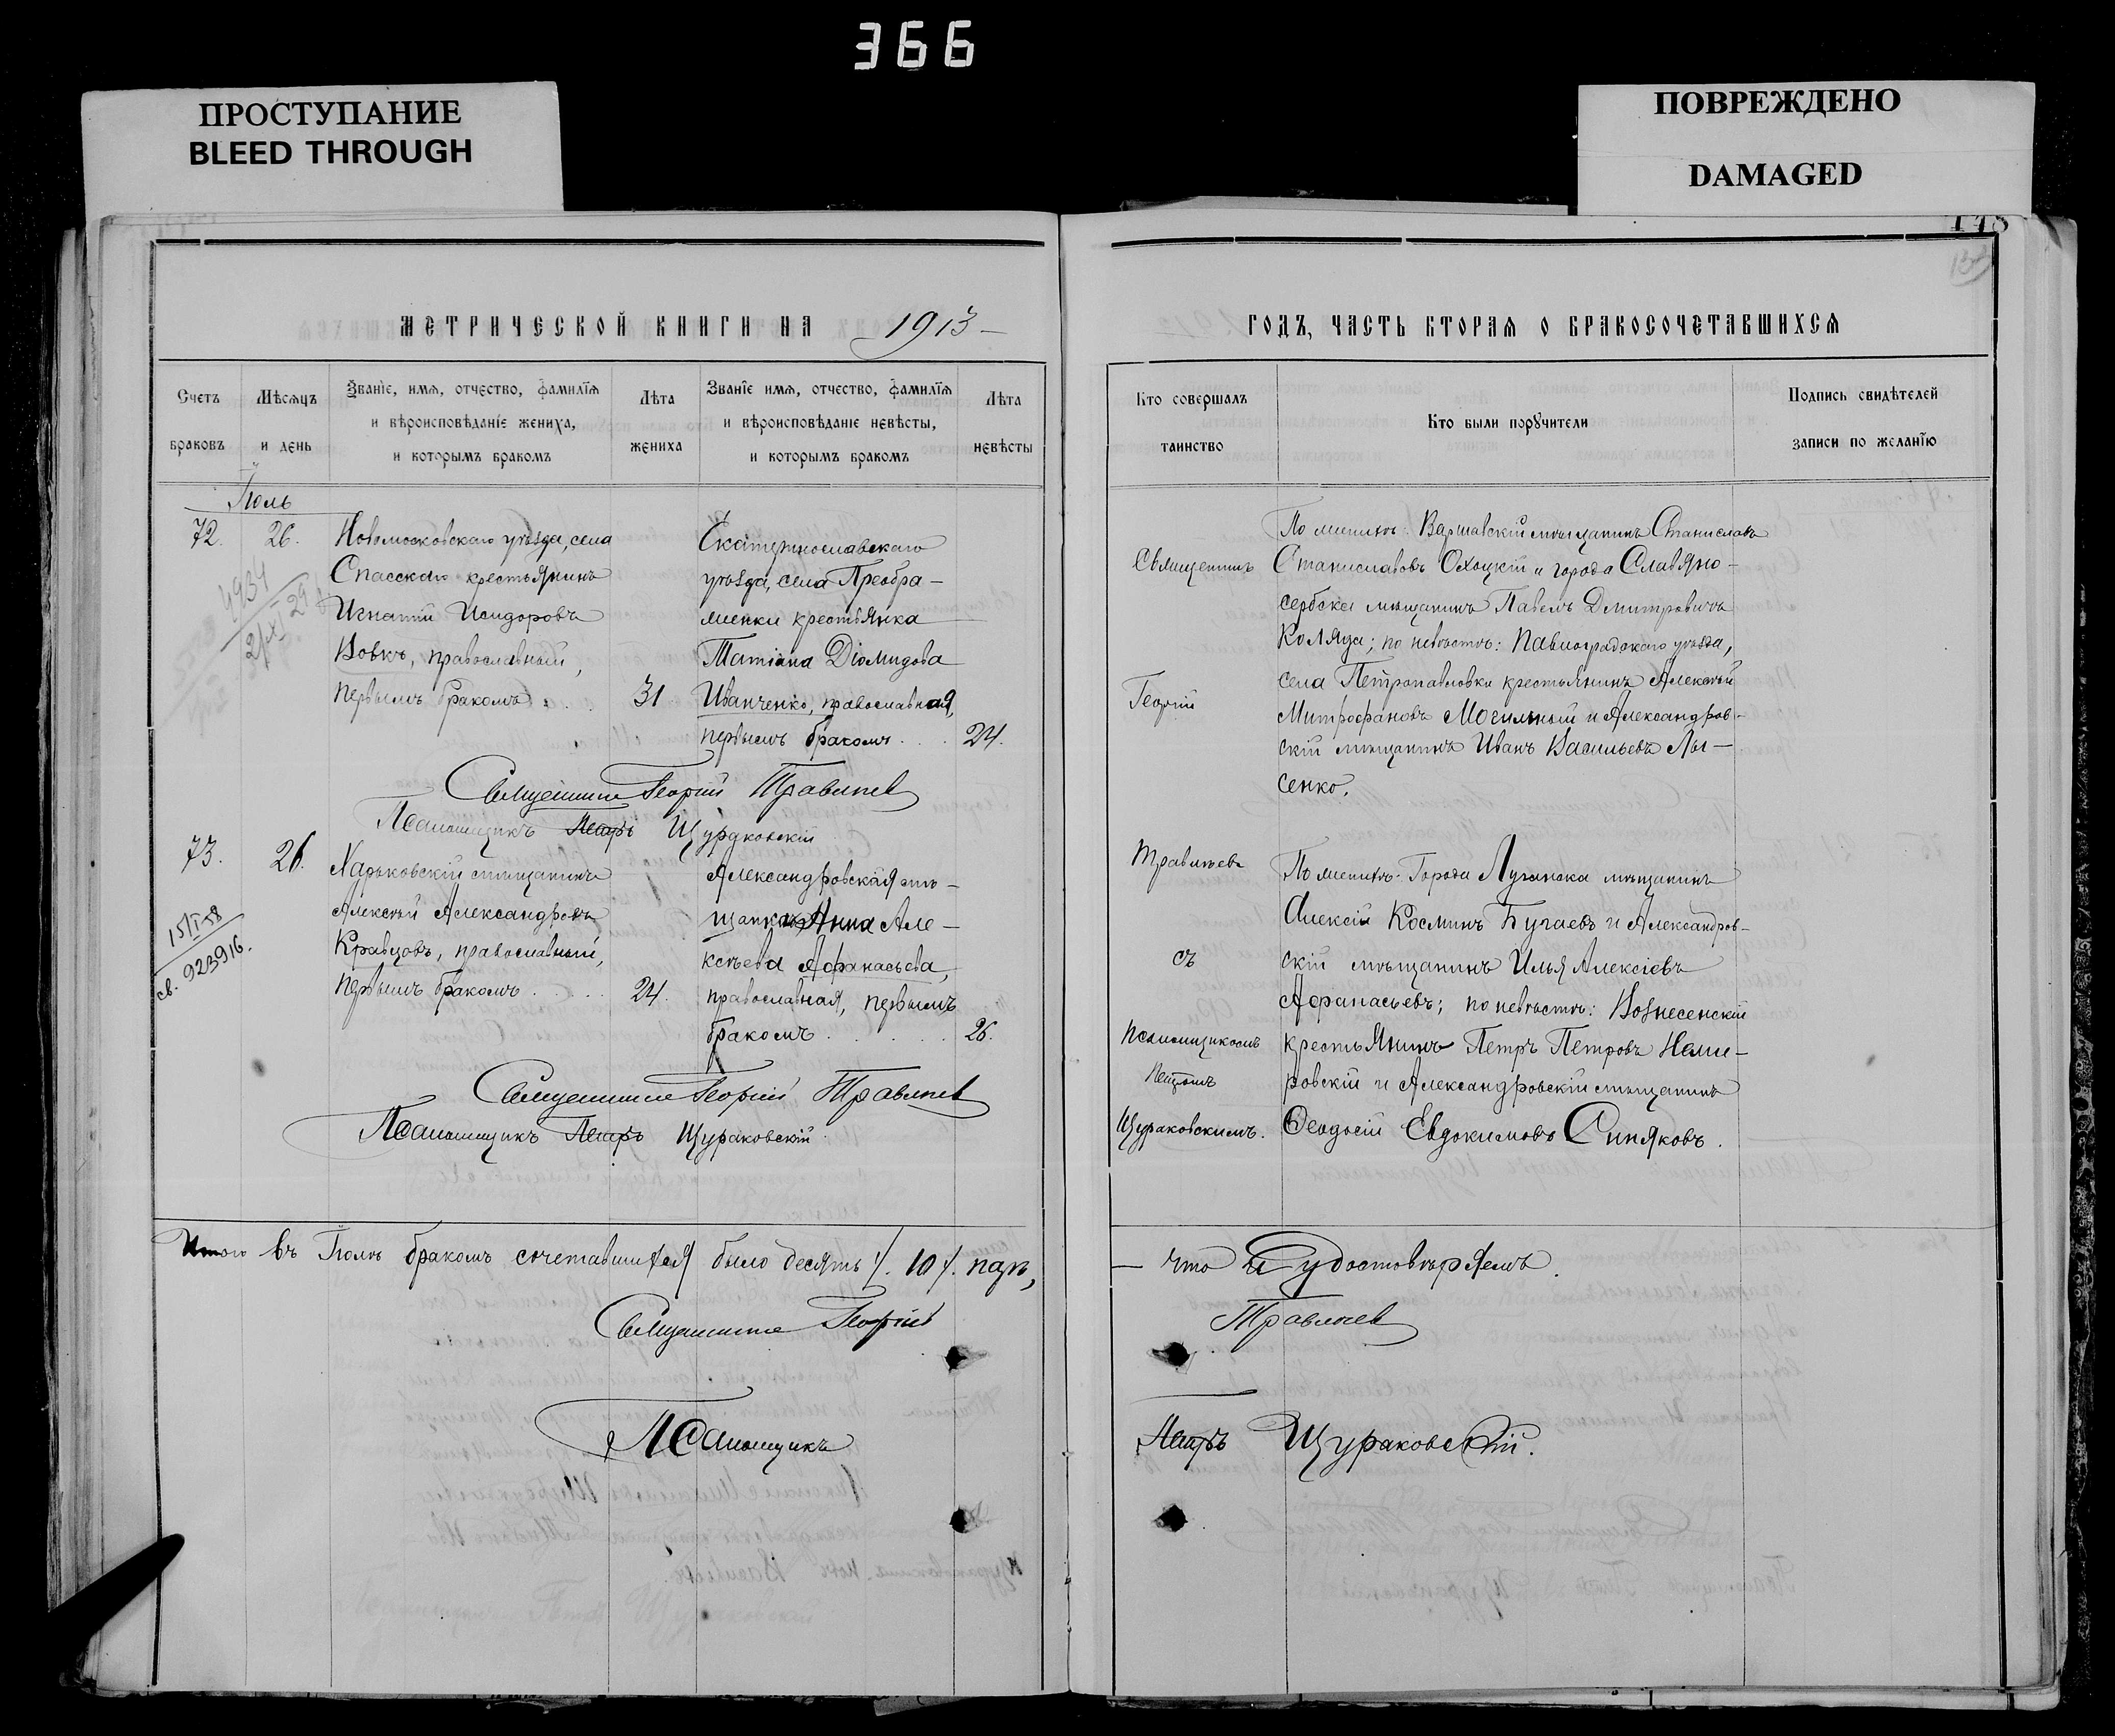 366
ПРОСТУПАНИЕ
BLEED THROUGH
ПОВРЕЖДЕНО
DAMAGED
148
МЕТРИЧЕСКОЙ КНИГИ НА 1913
Счетъ браковъ
Мѣсяцъ и день
Званіе, имя, отчество, фамилія
и вѣроисповѣданіе жениха,
и которымъ бракомъ
Лѣта жениха
Званіе имя, отчество, фамилія
и вѣроисповѣданіе невѣсты,
и которымъ бракомъ
Лѣта невѣсты
Іюль
72. 26.
Новомосковскаго уѣзда, села
Спасскаго крестьянинъ
Игнатій Исидоровъ
Вовкъ, православный,
первымъ бракомъ
31
Екатеринославскаго
уѣзда, села Преобра-
женки крестьянка
Татіана Діомидова
Иванченко, православная,
первымъ бракомъ
24.
Священникъ Георгій Травинев
Псаломщикъ Петръ Щураковскій
73. 26.
Харьковскій мѣщанинъ
Алексѣй Александровъ
Кравцовъ, православный,
первымъ бракомъ
24.
Александровская мѣ-
щанка Анна Але-
ксѣева Афанасьева,
православная, первымъ
бракомъ
26.
15/II-58
св. 923916.
Священникъ Георгій
Псаломщикъ Петръ Щураковскій
Итого въ Іюлѣ бракомъ сочетавшихся было десять /. 10 /. паръ,
Священникъ Георгій
Псаломщикъ
ГОДЪ, ЧАСТЬ ВТОРАЯ О БРАКОСОЧЕТАВШИХСЯ
Кто совершалъ таинство
Кто были поручители
Подпись свидѣтелей
записи по желанію
Священникъ
Георгій
съ
Псаломщикомъ
Петромъ
Щураковскимъ.
По женихѣ: Варшавскій мѣщанинъ Станиславъ
Станиславовъ Охоцкій и города Славяно-
сербска мѣщанинъ Павелъ Дмитровичъ
Коляда; по невѣстѣ: Павлоградскаго уѣзда,
села Петропавловки крестьянинъ Алексѣй
Митрофановъ Могильный и Александров-
скій мѣщанинъ Иванъ Васильевъ Лы-
сенко.
По женихѣ: Города Луганска мѣщанинъ
Алексій Космннъ Бугаевъ и Александров-
скій мѣщанинъ Илья Алексіевъ
Афанасьевъ; по невѣстѣ: Вознесенскій
крестьянинъ Петръ Петровъ Неми-
ровскій и Александровскій мѣщанинъ
Феодосій Евдокимовъ Синяковъ.
что и удостовѣряемъ.
Петръ Щураковскій.